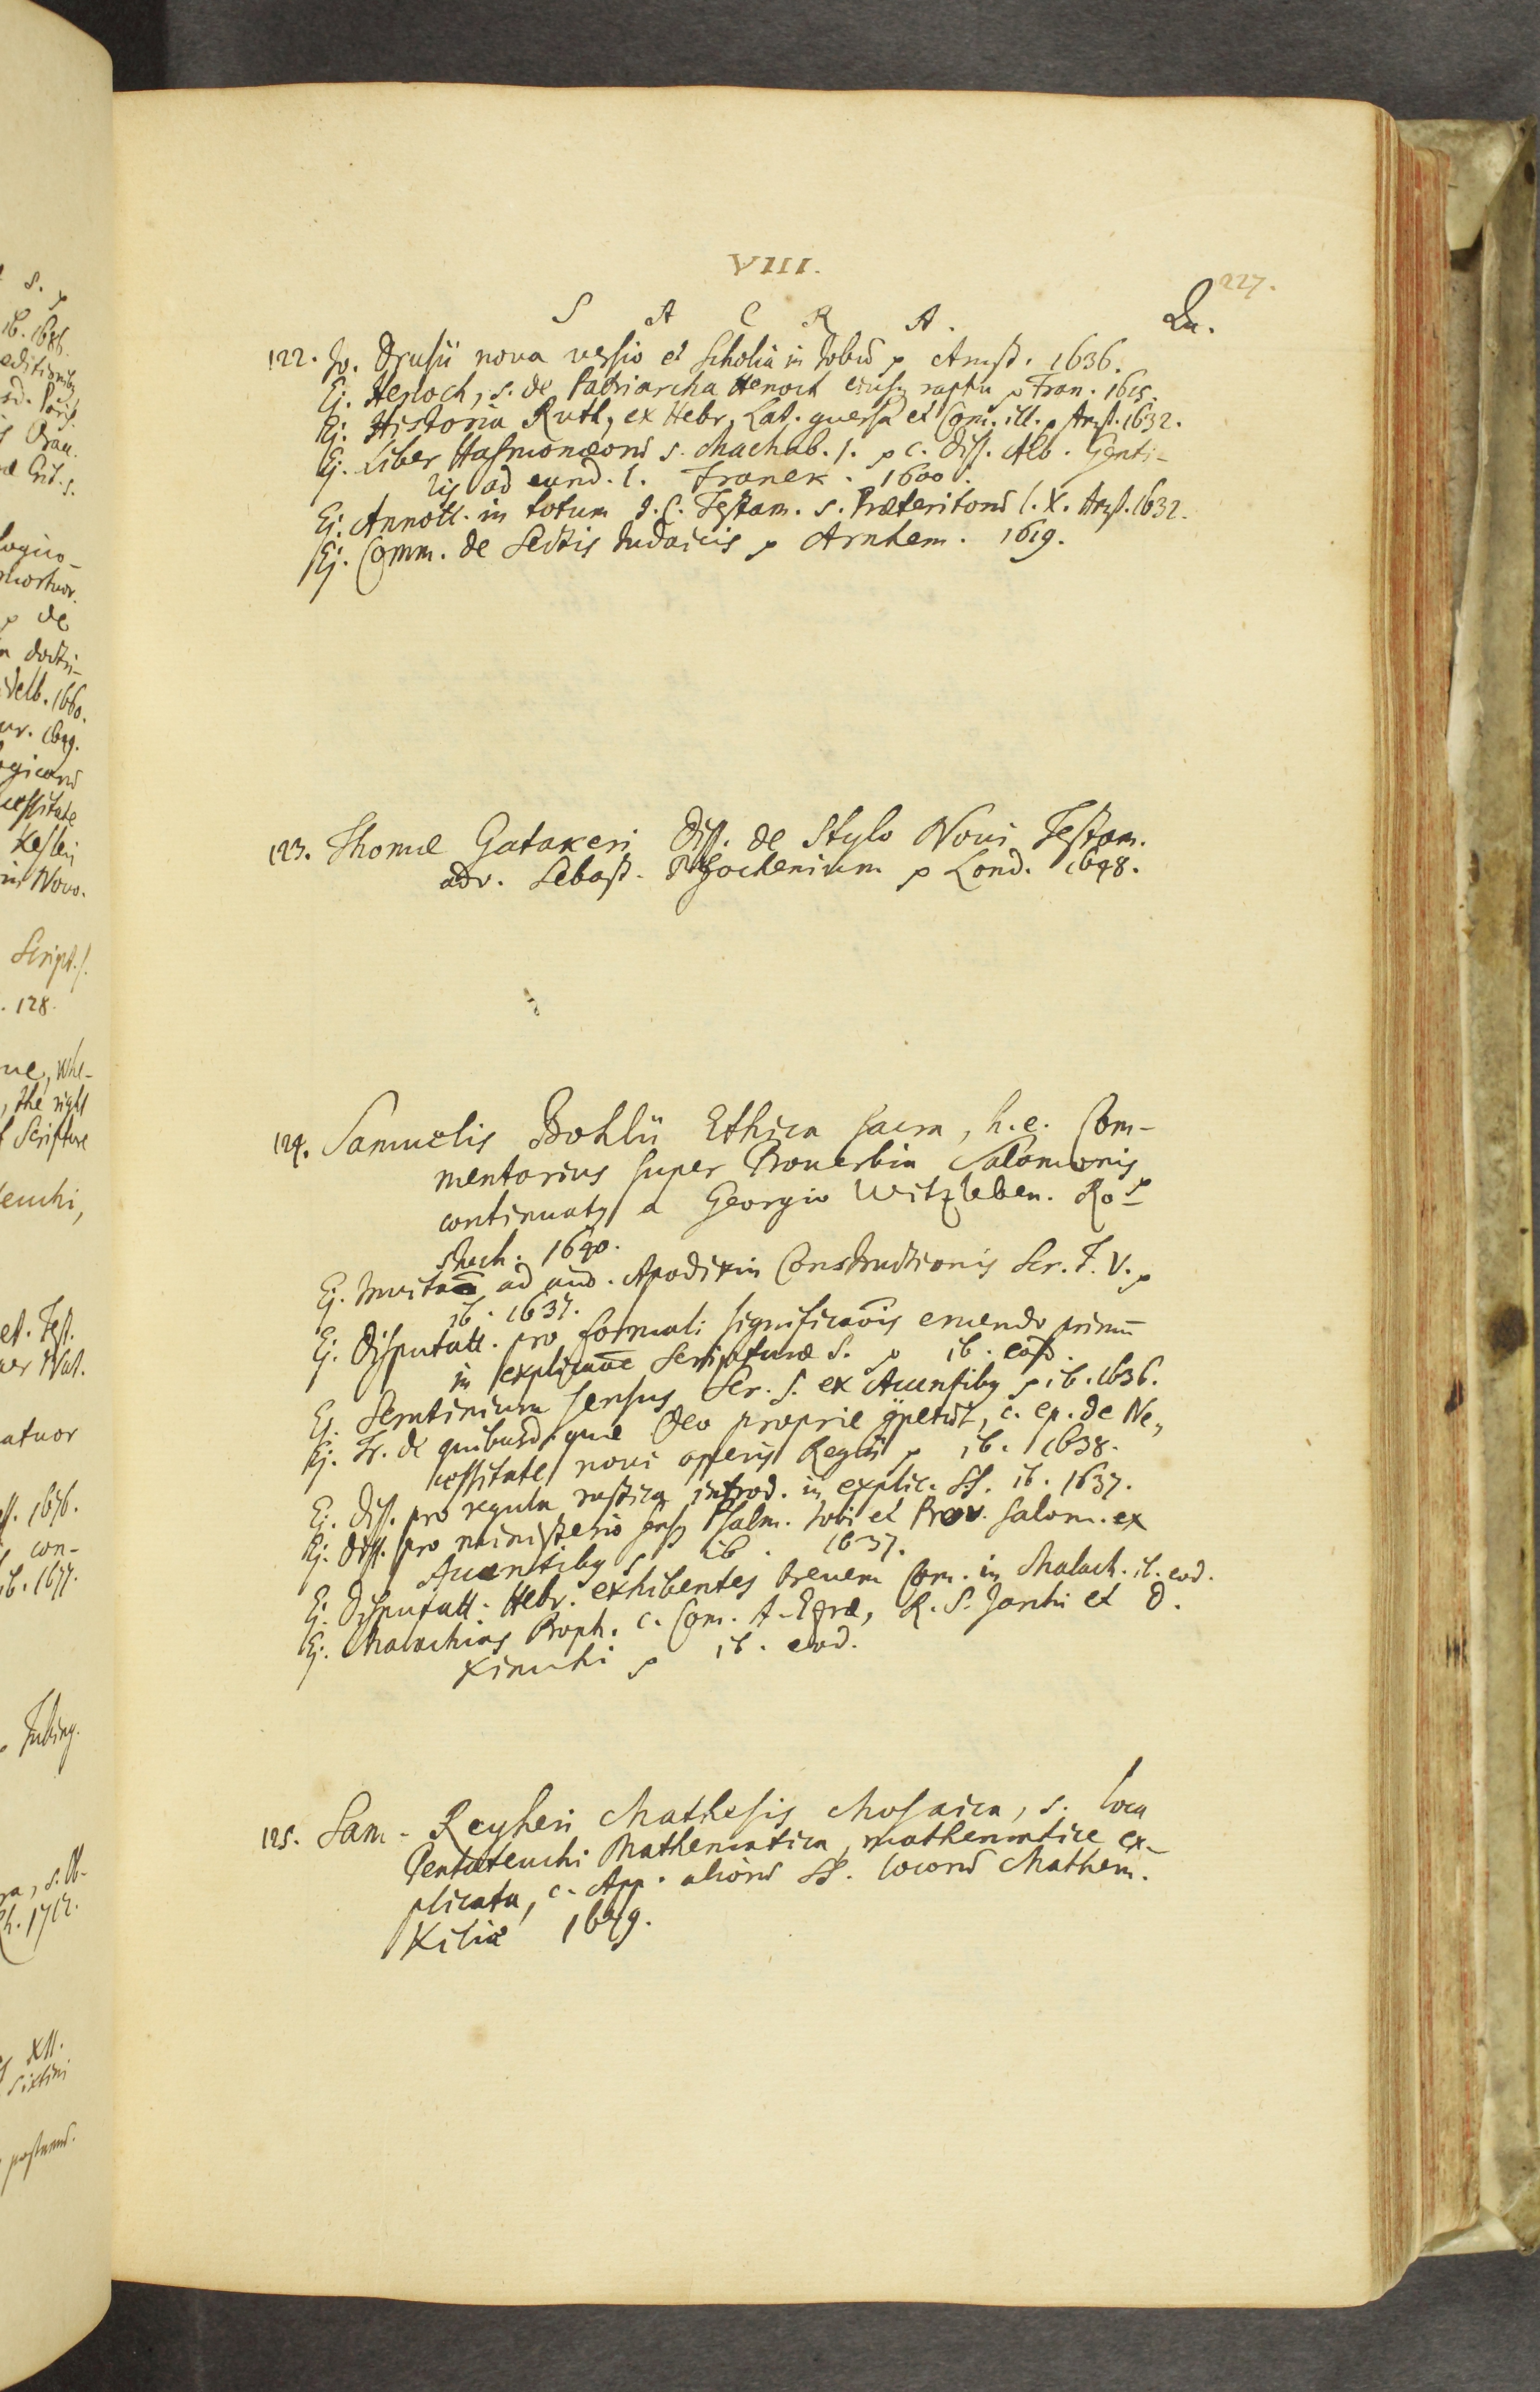 VIII.
227.
S A C R A.
Qu.
122. Jo. Drusii nova versio et Scholia in Jobū p Amst. 1636.
Ej. Henoch, s. de Patriarcha Henoch eiusq raptu p Fran. 1615.
Ej. Historia Ruth, ex Hebr. Lat. et Com. ill. p Amst. 1632.
Ej. Liber Hasmonæorū s. Machab. 1. p c. diss. Alb. Genti-
lis ad eund. l. Franek. 1600.
Ej. Annott. in totum J. C. Testam. s. Præteritorū l. X. Amst. 1632.
Ej. Comm. de Sectis Judaicis p Arnhem. 1619.
123. Thomæ Gatakeri Diss. de Stylo Novi Testam.
adv. Sebast. Pfochenium p Lond. 1648.
124. Samuelis Bohlii Ethica sacra, h. e. Com-
mentarius super Prouerbia Salomonis
continuatq a Georgio Witzleben. Ro-
stoch. 1640.
Ej. ad aud. Apodixin Constructionis Scr. T. V. p
ib. 1637.
Ej. Disputatt. pro formali significaōis eruendo primū
in explicaōe Scripturæ S. p ib. eod.
Ej. Scrutinium sensus Scr. S. ex Accentibq p ib. 1636.
Ej. Tr. de quibusd. quæ Deo proprie c. ep. de Ne-
cessitate novi operis Regii p ib. 1638.
Ej. Diss. pro regula rustica introd. in explic. SS. ib. 1637.
Ej. Diss. pro ministerio sensq Psalm. Jobi et Prov. Salom. ex
Accentibq p ib. 1637.
Ej. Disputatt. Hebr. exhibentes breuem Com. in Malach. ib. eod.
Ej. Malachias Proph. c. Com. A. Ezræ, R. S. Jarchi et D.
Kimchi p ib. eod.
125. Sam. Reyheri Mathesis Mosaica, s. loca
Pentateuchi Mathematica, mathematice ex-
plicata, c. App. aliorū SS. locorū Mathem.
Kiliæ 1679.